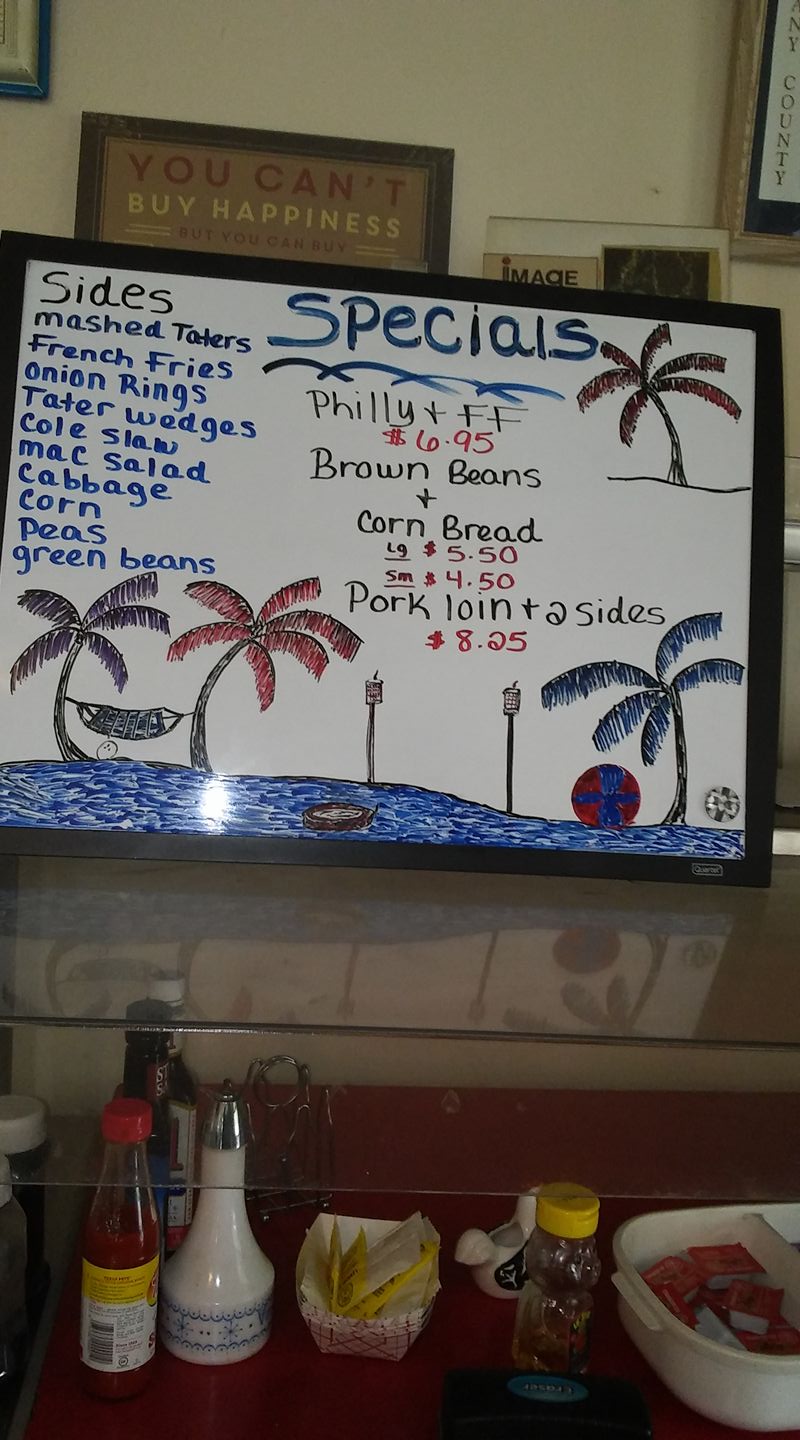 ANY COUNTY
YOU CAN'T
BUY HAPPINESS
BUT YOU CAN BUY
iMAGE
Sides
mashed Taters
French Fries
onion Rings
Tater wedges
Cole slaw
mac salad
Cabbage
Corn
Peas
green beans
Specials
Philly + FF
$6.95
Brown Beans
+
Corn Bread
Lg $5.50
Sm $4.50
Pork loin + 2 sides
$8.25
Quartet
Eraser